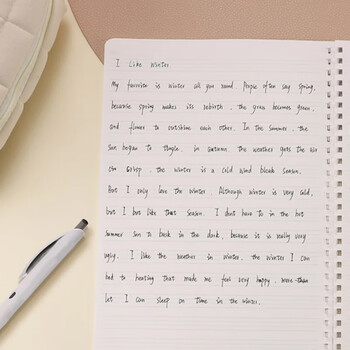 I Like Winter
My favorite is winter all you round. People often say spring,
because spring makes its rebirth, the grass becomes green,
and flower to outshine each other. In the summer, the
sun began to tingle, in autumn, the weather gets the air
crisp, the winter is a cold wind bleak season.
But I only love the winter. Although winter is very cold,
but I but like that season. I don't have to in the hot
summer sun to bask in the dark, because it is really very
ugly. I like the weather in winter, the winter I can
bed to heating that made me feel very happy, more than
let I can sleep on time in the winter.